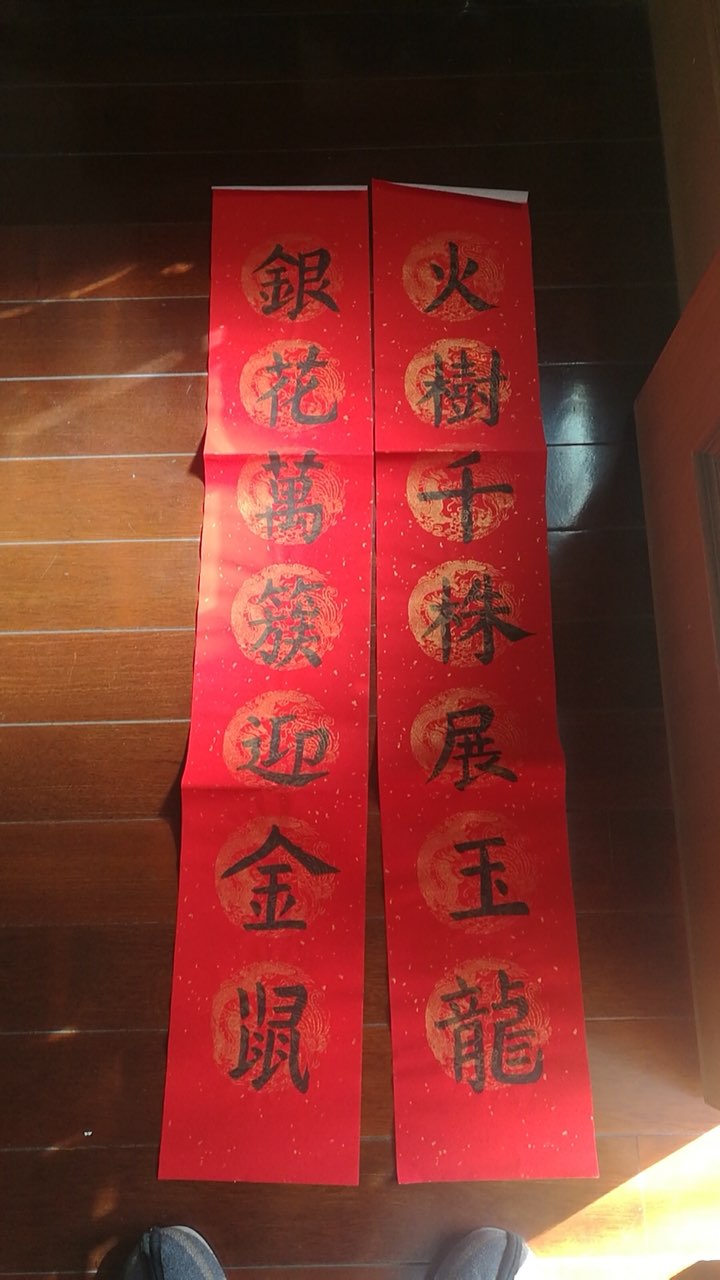 火樹千株展玉龍
銀花萬簇迎金鼠